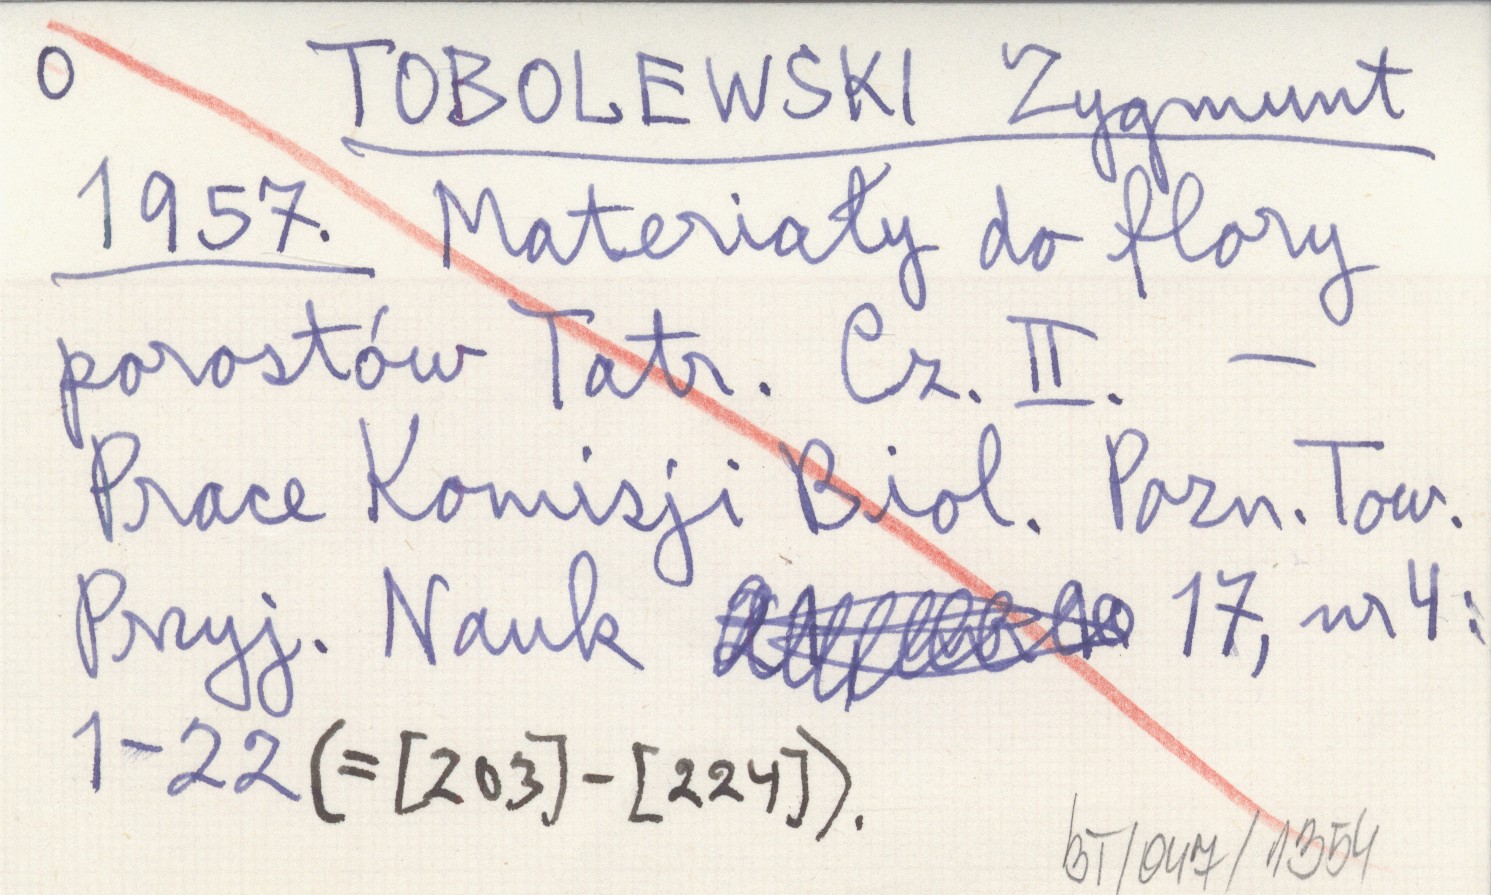 O TOBOLEWSKI Zygmunt
1957. Materiały do flory
porostów Tatr. Cz. II. —
Prace Komisji Biol. Pozn. Tow.
Przyj. Nauk 17, nr 4:
1-22 (= [203] - [224]).
BT/047/1354